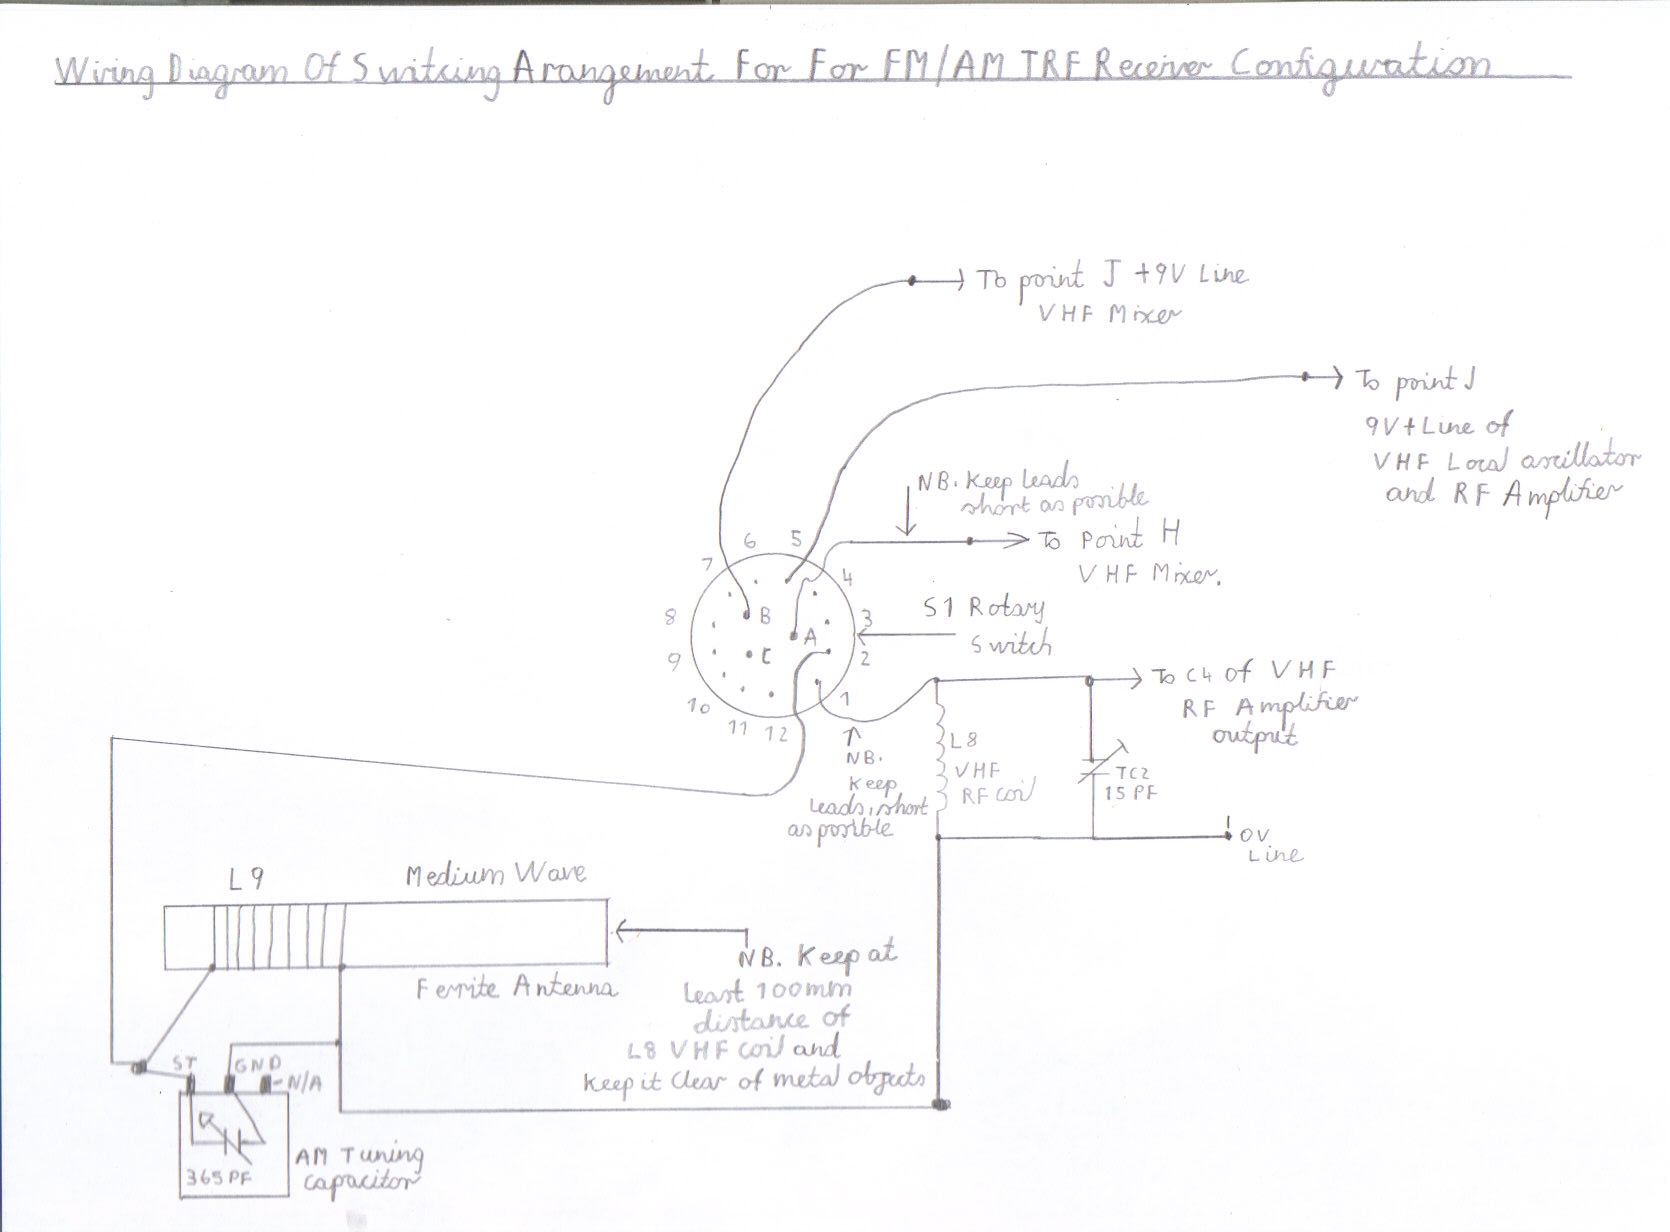 Wiring Diagram Of Switcing Arangement For For FM/AM TRF Receiver Configuration
To point J +9V Line
VHF Mixer
To point J
9V+Line of
VHF Local ascillator
and RF Amplifier
NB. Keep leads
short as posible
To Point H
VHF Mixer.
S1 Rotary
Switch
1
2
3
4
5
6
7
8
9
10
11
12
A
B
C
To C4 of VHF
RF Amplifier
output
L8
VHF
RF coil
TC2
15 PF
NB.
Keep
leads, short
as posible
0V
Line
L9
Medium Wave
Ferrite Antenna
NB. Keep at
least 100mm
distance of
L8 VHF coil and
keep it clear of metal objects
ST
GND
N/A
365 PF
AM Tuning
capacitor